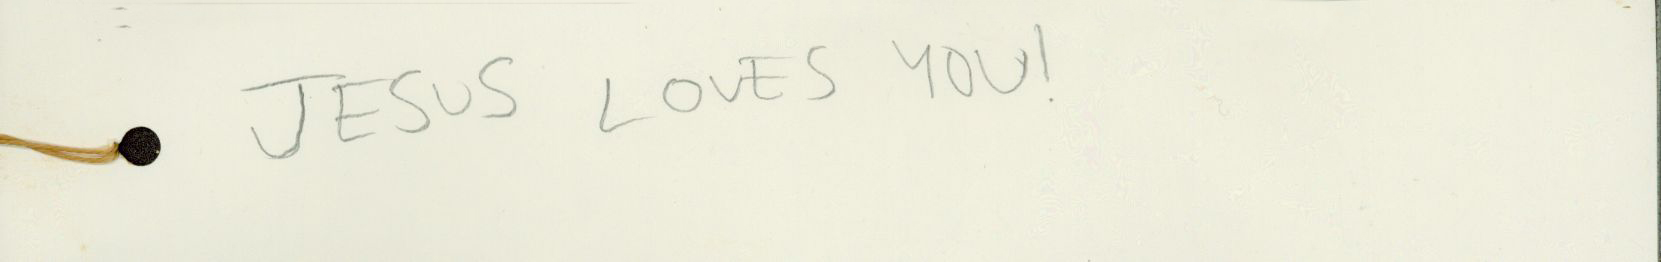 JESUS LOVES YOU!